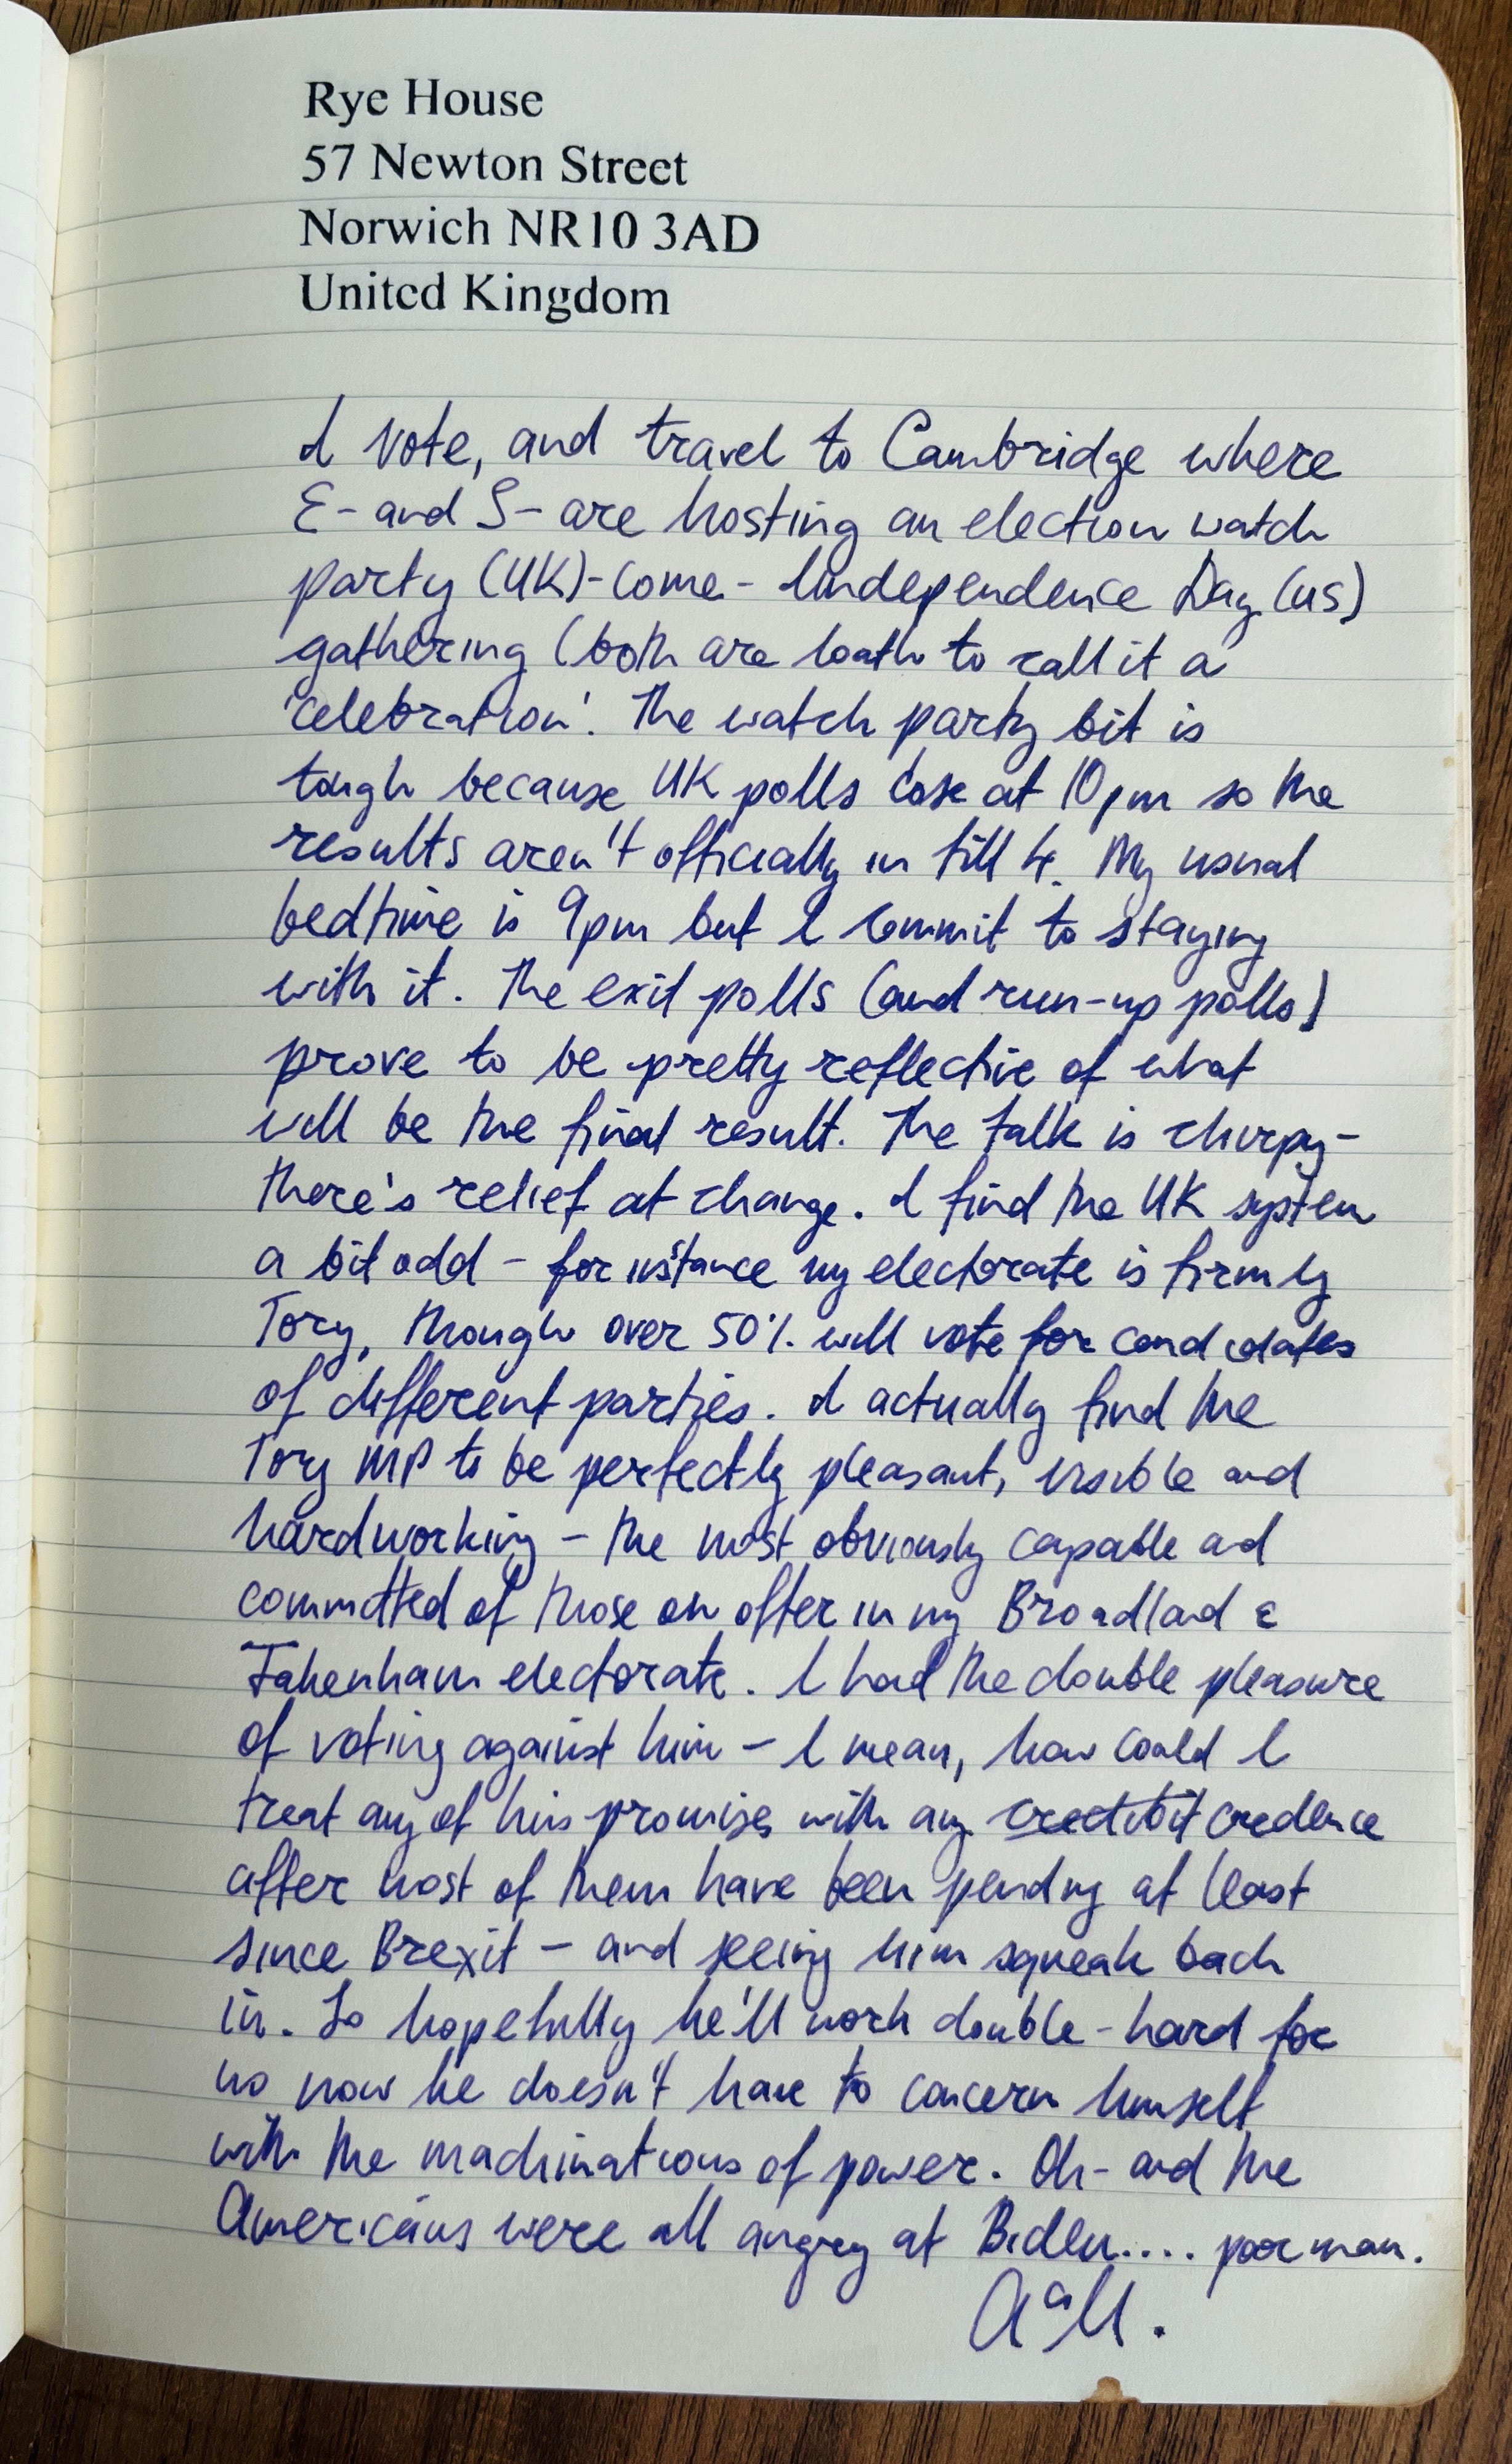 Rye House
57 Newton Street
Norwich NR10 3AD
United Kingdom
I vote, and travel to Cambridge where
E- and S- are hosting an election watch
party (UK)-come-Independence Day (US)
gathering (both are loath to call it a
'celebration'. The watch party bit is
tough because UK polls close at 10pm so the
results aren't officially in till 4. My usual
bedtime is 9pm but I commit to staying
with it. The exit polls (and run-up polls)
prove to be pretty reflective of what
will be the final result. The talk is chirpy-
there's relief at change. I find the UK system
a bit odd - for instance my electorate is firmly
Tory, though over 50% will vote for candidates
of different parties. I actually find the
Tory MP to be perfectly pleasant, visible and
hardworking - the most obviously capable and
committed of those on offer in my Broadland &
Fakenham electorate. I had the double pleasure
of voting against him - I mean, how could I
treat any of his promises with any credibit credence
after most of them have been pending at least
since Brexit - and seeing him squeak back
in. So hopefully he'll work double-hard for
us now he doesn't have to concern himself
with the machinations of power. Oh- and the
Americans were all angry at Biden.... poor man.